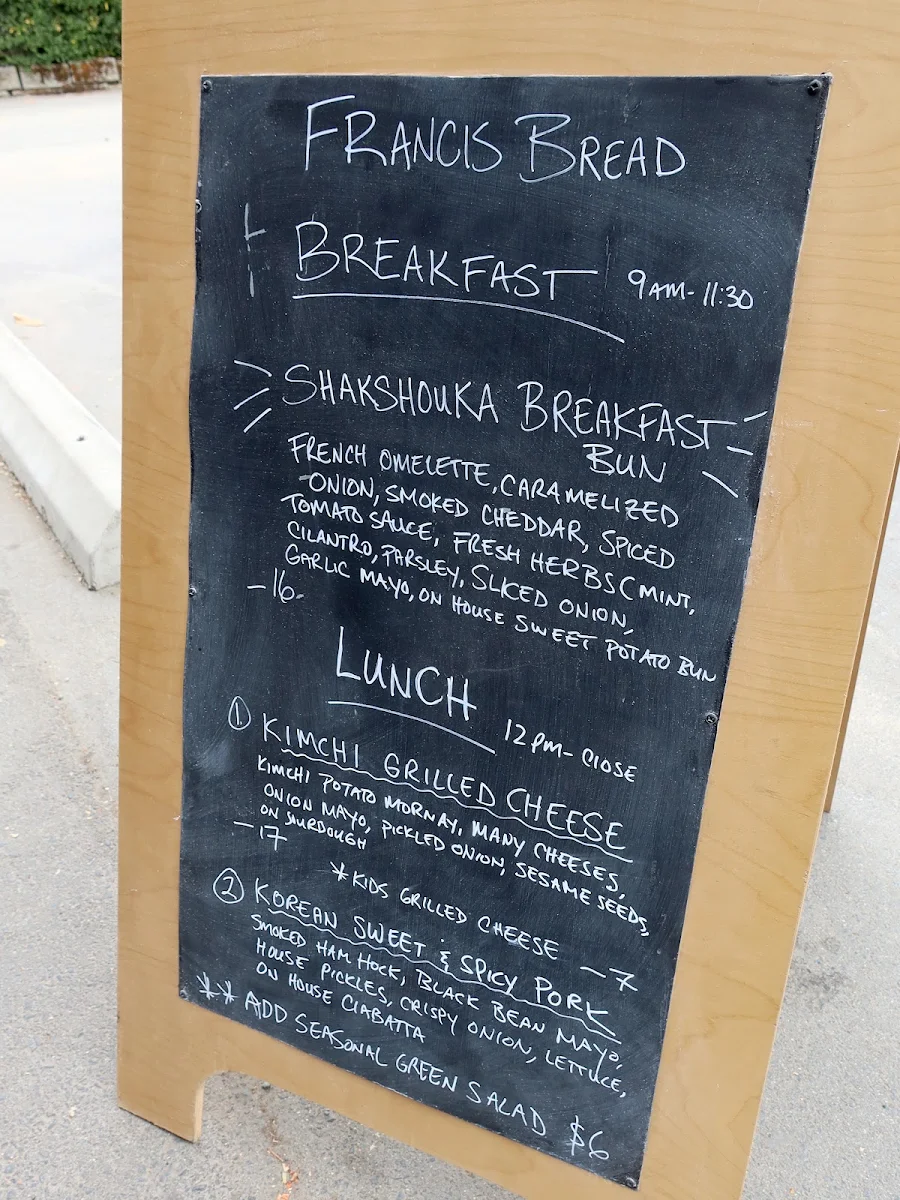 FRANCIS BREAD
BREAKFAST 9AM-11:30
SHAKSHOUKA BREAKFAST
BUN
FRENCH OMELETTE, CARAMELIZED
ONION, SMOKED CHEDDAR, SPICED
TOMATO SAUCE, FRESH HERBS (MINT,
CILANTRO, PARSLEY, SLICED ONION,
GARLIC MAYO, ON HOUSE SWEET POTATO BUN
-16-
LUNCH 12PM-CLOSE
1. KIMCHI GRILLED CHEESE
KIMCHI POTATO MORNAY, MANY CHEESES,
ONION MAYO, PICKLED ONION, SESAME SEEDS,
ON SOURDOUGH
-17
*KIDS GRILLED CHEESE -7
2 KOREAN SWEET & SPICY PORK
SMOKED HAM HOCK, BLACK BEAN MAYO,
HOUSE PICKLES, CRISPY ONION, LETTUCE,
ON HOUSE CIABATTA
** ADD SEASONAL GREEN SALAD $6